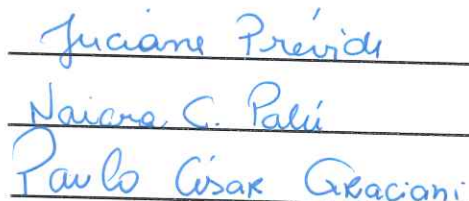 Juciane Prévide
Naiara C. Palú
Paulo César Graciani